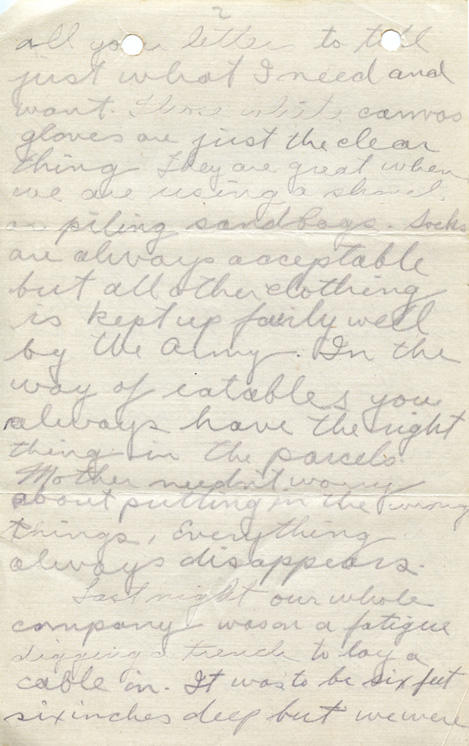 2
all your letter to tell
just what I need and
want. Those white canvas
gloves are just the clear
thing They are great when
we are using a shovel
or piling sandbags. Socks
are always acceptable
but all other clothing
is kept up fairly well
by the Army. In the
way of eatables you
always have the right
thing in the parcels
Mother needn't worry
about putting in the wrong
things, Everything
always disappears.
Last night our whole
company was on a fatigue
digging a trench to lay a
cable in. It was to be six feet
six inches deep but we were